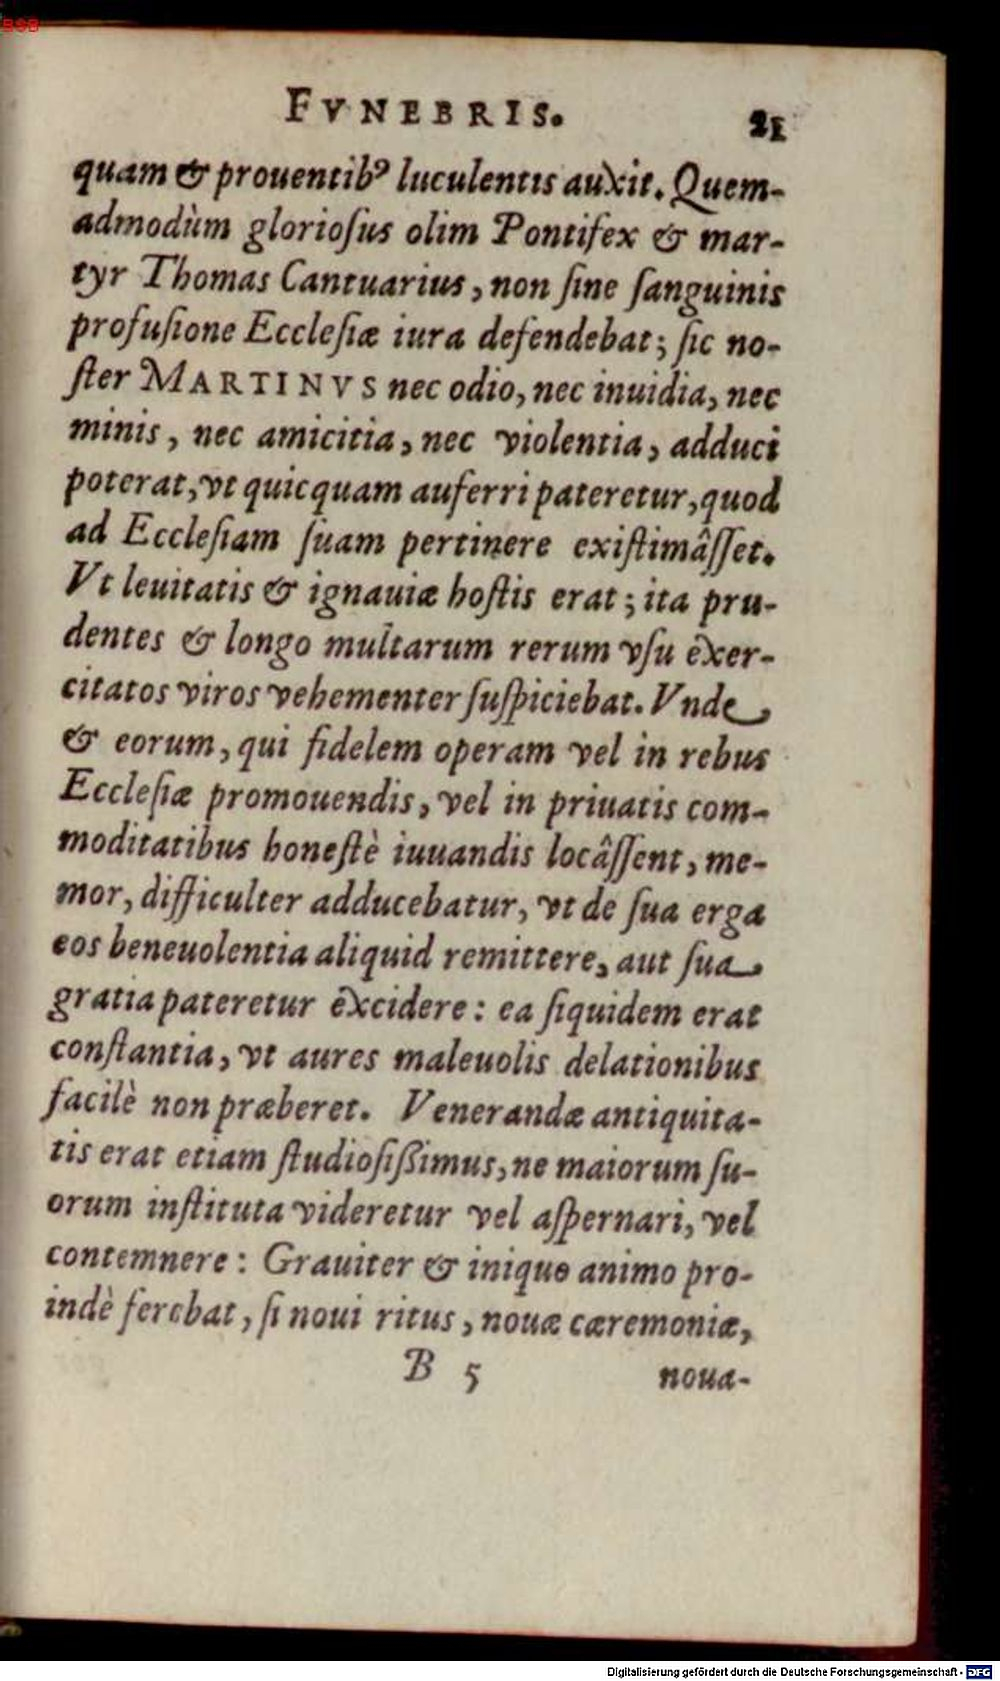 BSB
FVNEBRIS. 21
quam & prouentibꝰ luculentis auxit. Quem-
admodùm gloriosus olim Pontifex & mar-
tyr Thomas Cantuarius, non sine sanguinis
profusione Ecclesiæ iura defendebat; sic no-
ster MARTINVS nec odio, nec inuidia, nec
minis, nec amicitia, nec violentia, adduci
poterat, vt quicquam auferri pateretur, quod
ad Ecclesiam suam pertinere existimâsset.
Vt leuitatis & ignauiæ hostis erat; ita pru-
dentes & longo multarum rerum vsu exer-
citatos viros vehementer suspiciebat. Vnde
& eorum, qui fidelem operam vel in rebus
Ecclesiæ promouendis, vel in priuatis com-
moditatibus honestè iuuandis locâssent, me-
mor, difficulter adducebatur, vt de sua erga
eos beneuolentia aliquid remittere, aut sua
gratia pateretur excidere: ea siquidem erat
constantia, vt aures maleuolis delationibus
facilè non præberet. Venerandæ antiquita-
tis erat etiam studiosißimus, ne maiorum su-
orum instituta videretur vel aspernari, vel
contemnere: Grauiter & iniquo animo pro-
indè ferebat, si noui ritus, nouæ cæremoniæ,
B 5 noua-
Digitalisierung gefördert durch die Deutsche Forschungsgemeinschaft - DFG